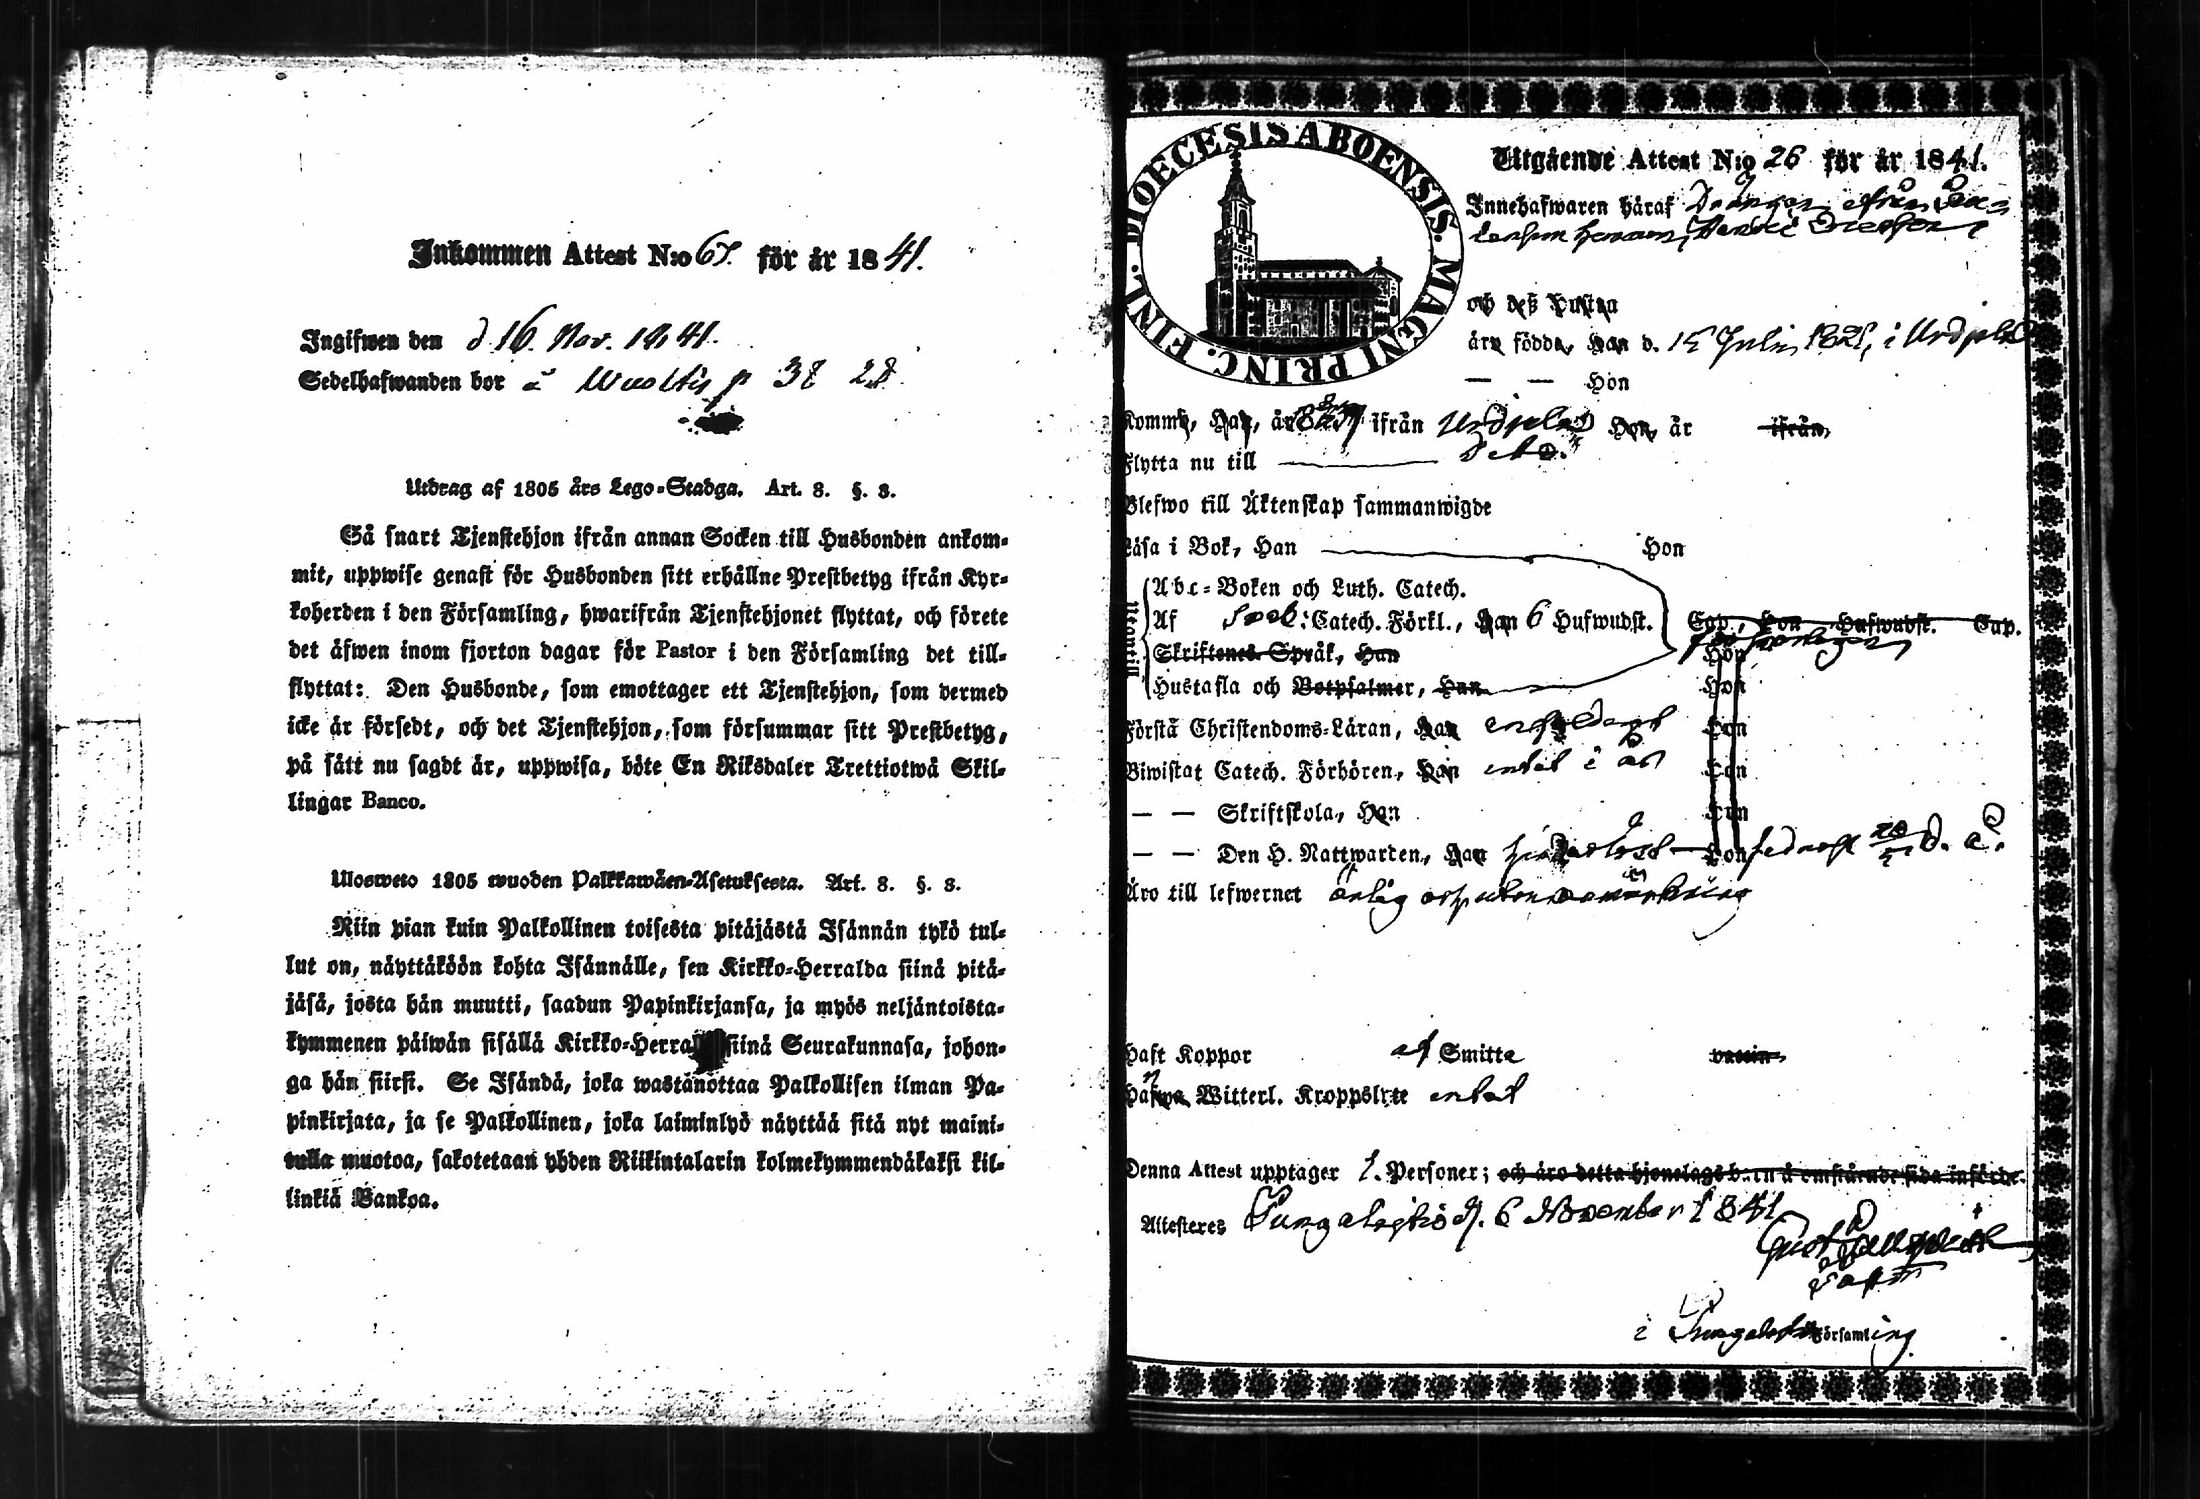 Inkommen Attest N:o 67. för år 1841.
Ingifwen den d 16. Nov. 1841.
Sedelhafwanden bor å p 38 28
Utdrag af 1805 års Lego-Stadga. Art. 8. §. 8.
Så snart Tjenstehjon ifrån annan Socken till Husbonden ankom-
mit, uppwise genast för Husbonden sitt erhållne Prestbetyg ifrån Kyr-
koherden i den Församling, hwarifrån Tjenstehjonet flyttat, och förete
det äfwen inom fjorton dagar för Pastor i den Församling det till-
flyttat: Den Husbonde, som emottager ett Tjenstehjon, som dermed
icke är försedt, och det Tjenstehjon, som försummar sitt Prestbetyg,
på sätt nu sagdt är, uppwisa, böte En Riksdaler Trettiotwå Skil-
lingar Banco.
Ulosweto 1805 wuoden Palkkawäen-Asetuksesta. Art. 8. §. 8.
Niin pian kuin Palkollinen toisesta pitäjästä Isännän tykö tul-
lut on, näyttäköön kohta Isännälle, sen Kirkko-Herralda siinä pitä-
jäsä, josta hän muutti, saadun Papinkirjansa, ja myös neljäntoista-
kymmenen päiwän sisällä Kirkko-Herral siinä Seurakunnasa, johon-
ga hän siirsi. Se Isändä, joka wastanottaa Palkollisen ilman Pa-
pinkirjata, ja se Palkollinen, joka laiminlyö näyttää sitä nyt maini-
tulla muotoa, sakotetaan yhden Riikintalarin kolmekymmendäkaksi kil-
linkiä Bankoa.
DIOECESIS ABOENSIS. MAGNI PRINC. FINL.
Utgående Attest N:o 26 för år 1841.
Innehafwaren häraf Drängen ifrån
och deß Hustru
äro födde, Han d. 15 Julii 1821, i Urdiala
— — Hon
Komme, Han, år 1837 ifrån Urdiala Hon, år ifrån
Flytta nu till — dito.
Blefwo till Äktenskap sammanwigde
Läsa i Bok, Han — Hon
Utantill
Abc-Boken och Luth. Catech.
Af Sveb: Catech. Förkl., Han 6 Hufwudst. Cap., Hon Hufwudst. Cap.
Skriftenes Språk, Han Hon
Hustafla och Botpsalmer, Han Hon
Förstå Christendoms-Läran, Han enfaldigt Hon
Biwistat Catech. Förhören, Han antal i år Hon
— — Skriftskola, Han Hon
— — Den H. Nattwarden, Han Hon
Äro till lefwernet ärlig och utan anmärkning
Haft Koppor af Smitta vaccin
Hafwa Witterl. Kroppslyte intet
Denna Attest upptager 1. Personer; och äro detta hjonelags barn å omstående sida införde.
Attesteres Tungelagtis d. 6 November 1841
Gust.
Past
i Församling